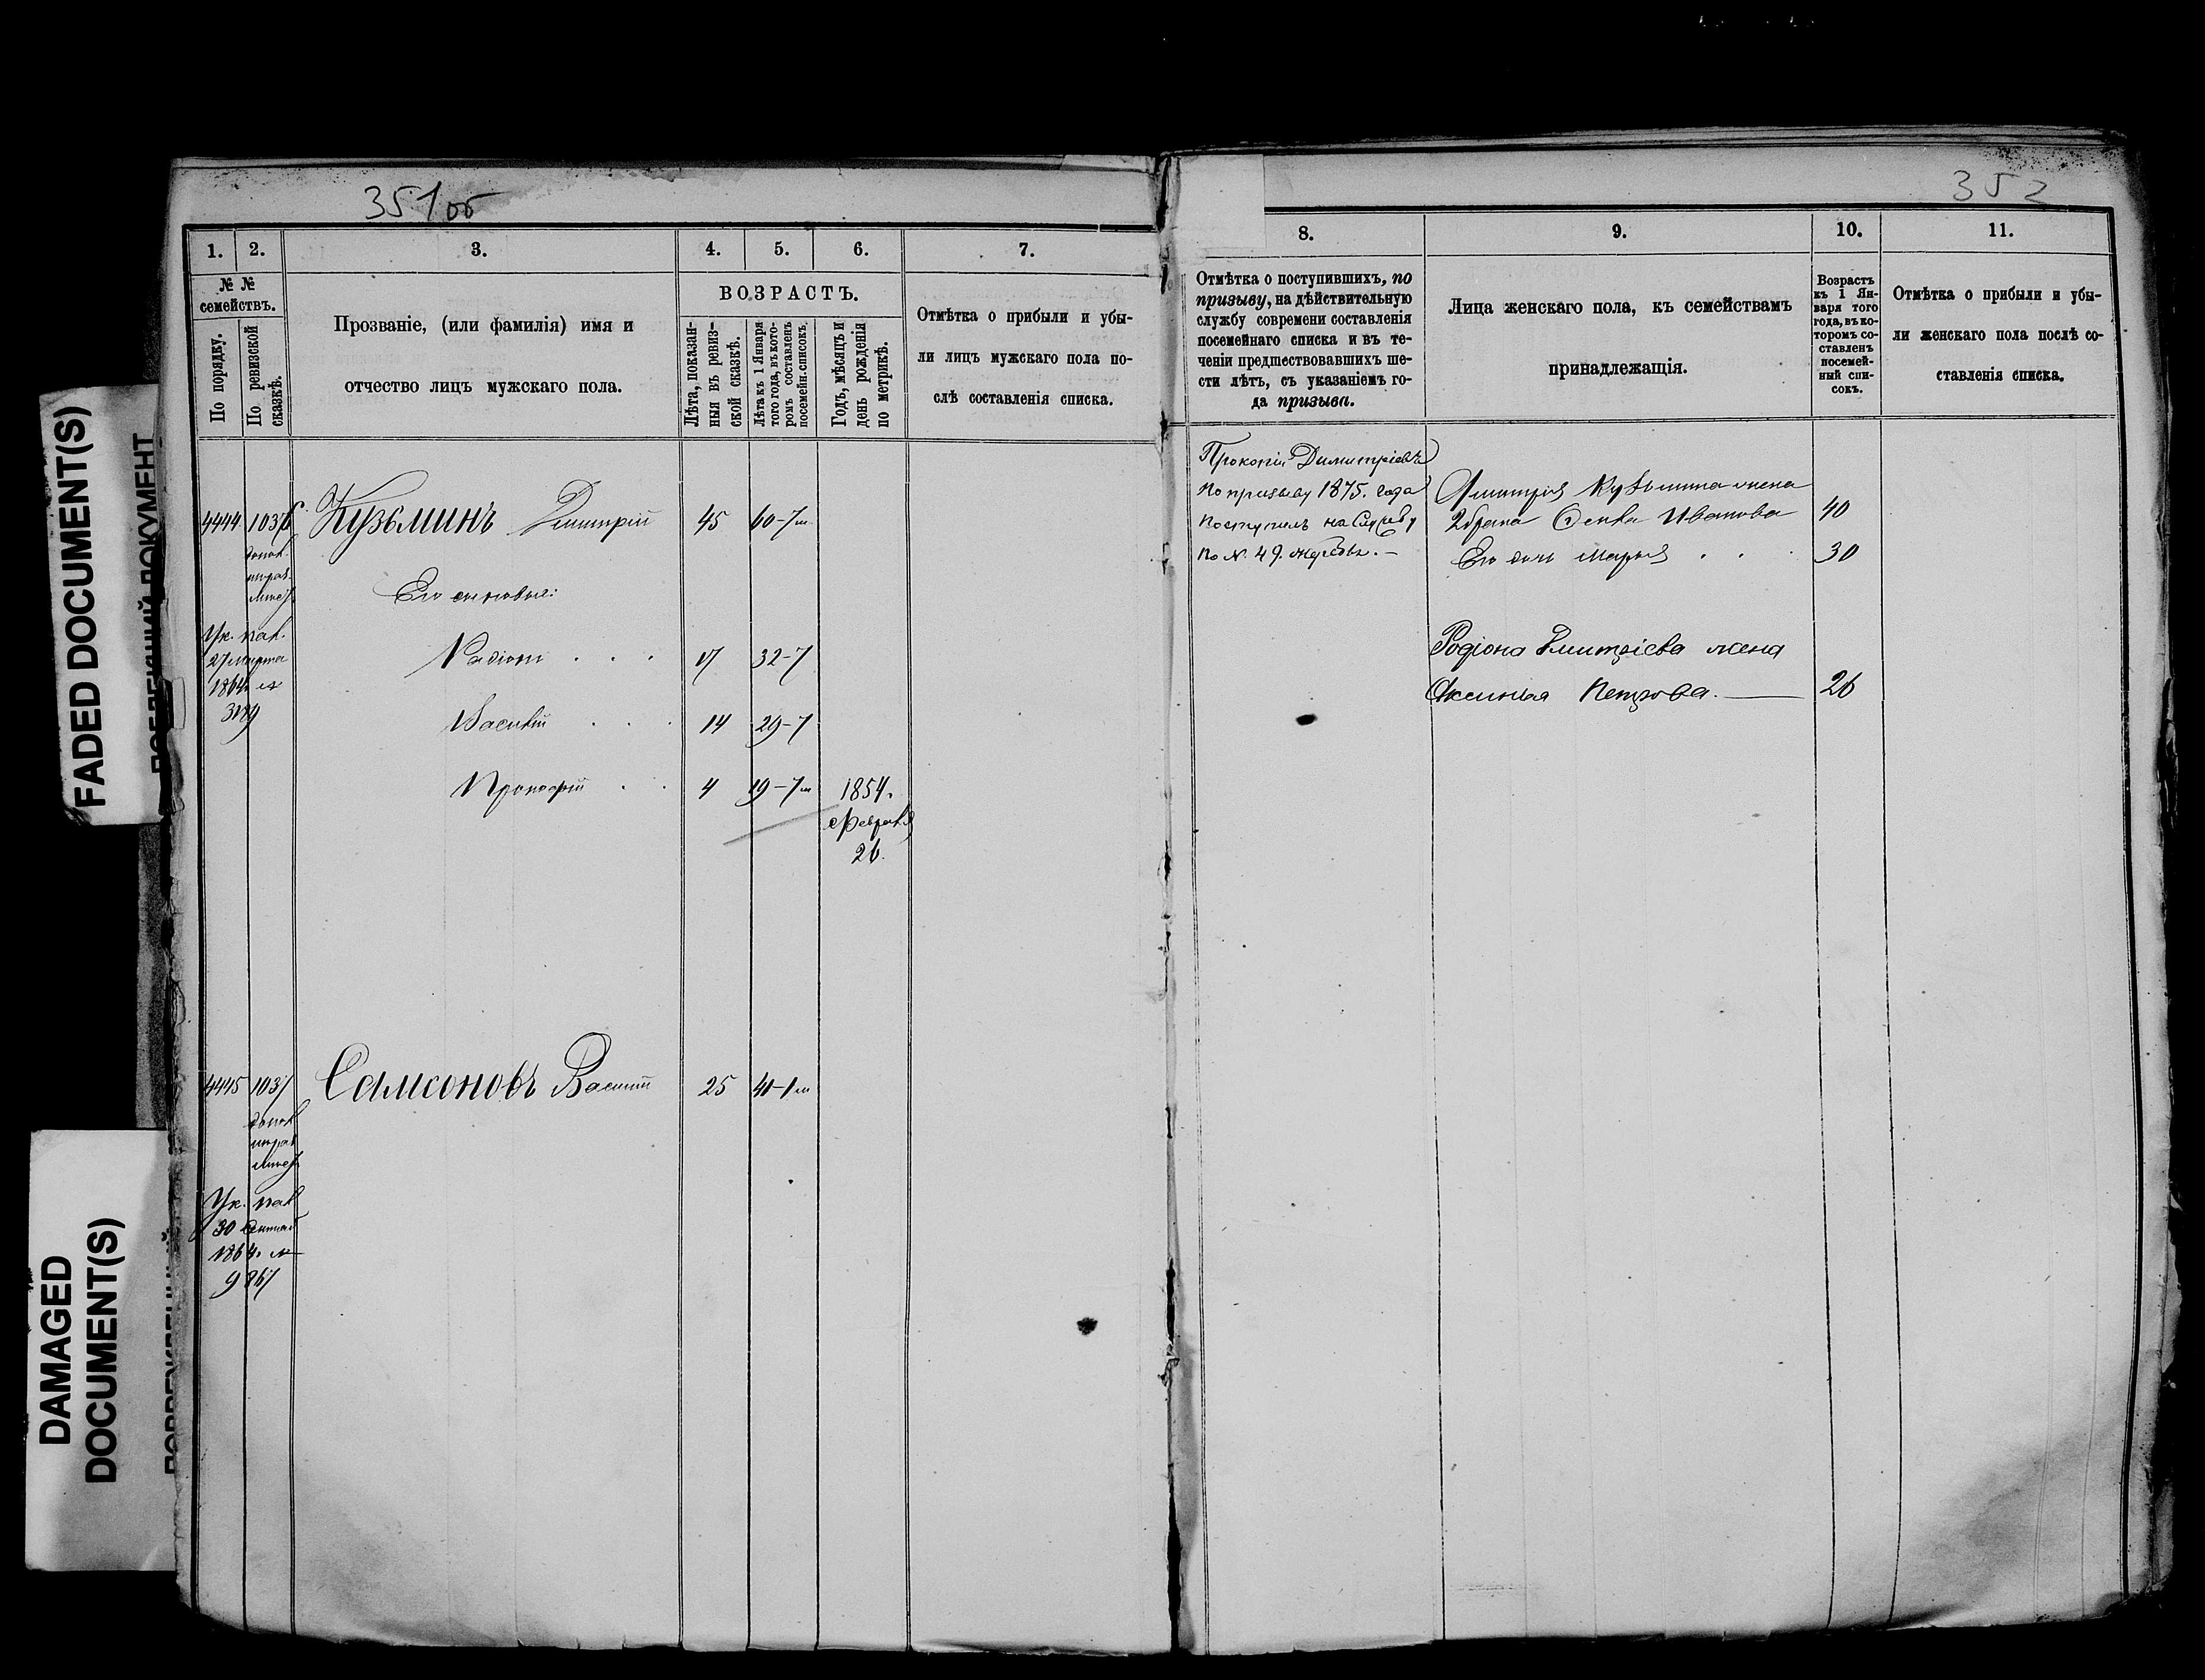 351об
352
1. 2. 3. 4. 5. 6. 7.
№ №
семействъ.
По порядку.
По ревизской
сказкѣ.
Прозваніе, (или фамилія) имя и
отчество лицъ мужскаго пола.
ВОЗРАСТЪ.
Лѣта, показан-
ныя въ ревиз-
ской сказкѣ.
Лѣта къ 1 Января
того года, въ кото-
ромъ составленъ
посемейн. списокъ.
Годъ, мѣсяцъ и
день рожденія
по метрикѣ.
Отмѣтка о прибыли и убы-
ли лицъ мужскаго пола по-
слѣ составленія списка.
4444 1036 Кузьминъ Дмитрій 45 60-7м
Ук. пал.
27 марта
1864 №
3189
Его сыновья:
Радіонъ . . . 17 32-7
Василій . . . 14 29-7
Прокофій . . 4 19-7м 1854.
Февраля
26.
4445 1037 Самсоновъ Василій 25 40-1м
Ук. пал
30
1864 №
9867
8. 9. 10. 11.
Отмѣтка о поступившихъ, по
призыву, на дѣйствительную
службу современи составленія
посемейнаго списка и въ те-
ченіи предшествовавшихъ ше-
сти лѣтъ, съ указаніемъ го-
да призыва.
Лица женскаго пола, къ семействамъ
принадлежащія.
Возрастъ
къ 1 Ян-
варя того
года, въ ко-
торомъ со-
ставленъ
посемей-
ный спи-
сокъ.
Отмѣтка о прибыли и убы-
ли женскаго пола послѣ со-
ставленія списка.
Прокопій Димитріевъ
по призыву 1875. года
поступилъ на Службу
по № 49. жеребью. —
Дмитрія Кузьмина жена
2 брака Иванова 40
Его дочь Марья . . . 30
Родіона Дмитріева жена
Аксинья Петрова. — 26
FADED DOCUMENT(S)
DAMAGED
DOCUMENT(S)